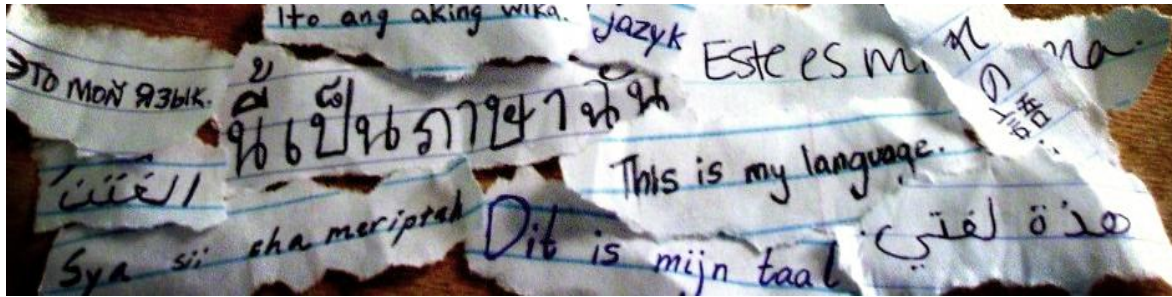 Ito ang aking wika.
jazyk
Este es
Это мой язык.
นี่เป็นภาษาฉัน
This is my language.
の
語
Sya sii sha meriptah
Dit is mijn taal
هذة لغتي